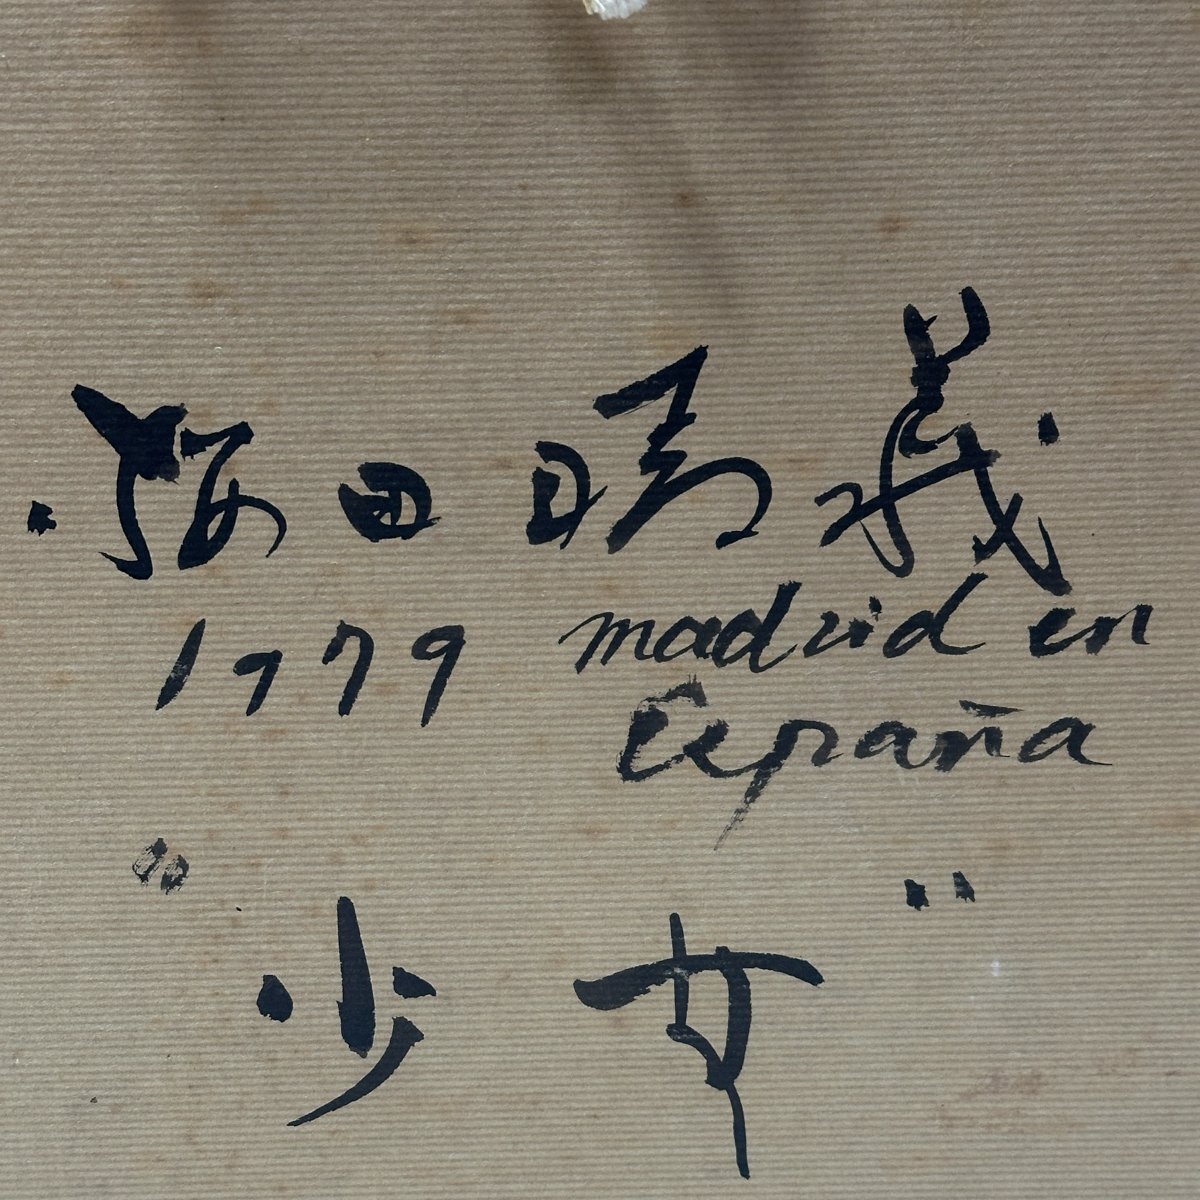 梅田晴義
1979 madrid en
España
"少女"